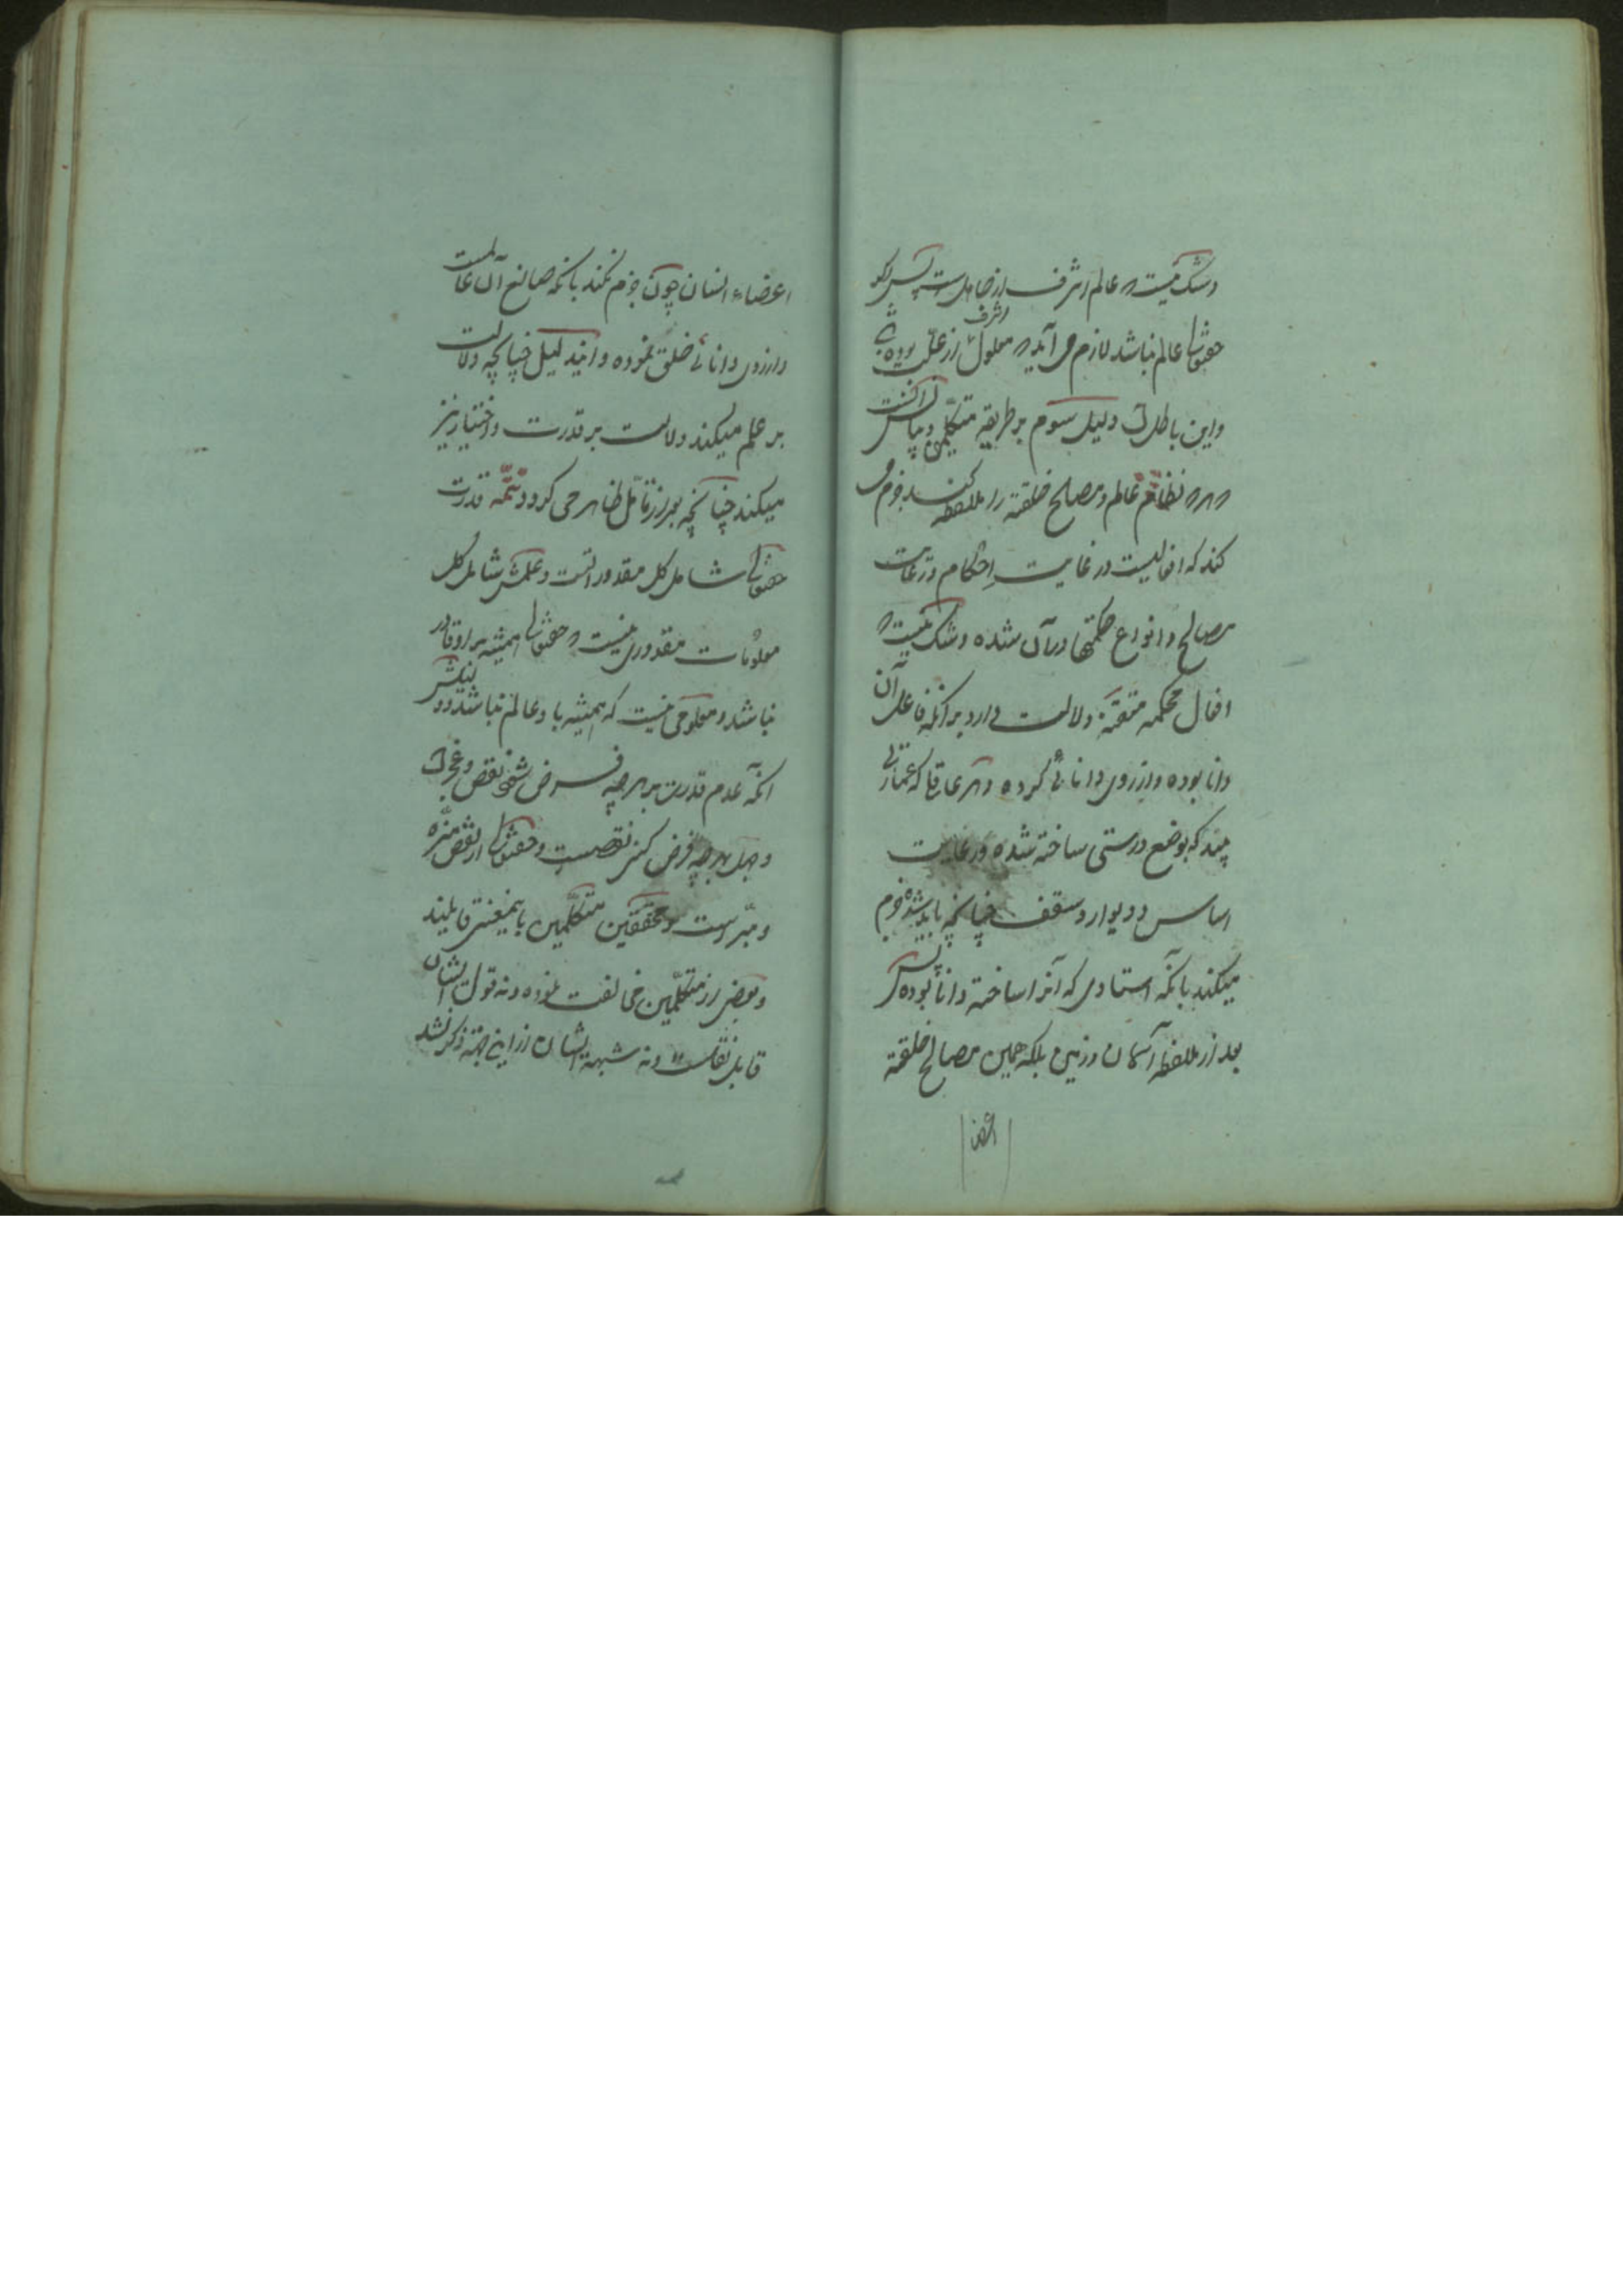 و شک نیست که عالم اشرف از جاهل است پس اگر
حقتعالی عالم نباشد لازم می آید که معلول اشرف از علت بوده باشد
و این باطل است دلیل سوم بر طریقه متکلمین و بیانش آنست
که هر که نظام عالم و مصالح خلقت را ملاحظه کند جزم می
کند که افعالیست در غایت احکام و رعایت
مصالح و انواع حکمتها در آن شده و شک نیست که
افعال محکمه متقنه دلالت دارد بر آنکه فاعل آن
دانا بوده و از روی دانائی کرده و هر عاقل که عمارتی
بیند که بوضع درستی ساخته شده و رعایت
اساس و دیوار و سقف چنانچه باید شده جزم
میکند بآنکه استادی که آنرا ساخته دانا بوده پس
بعد از ملاحظه آسمان و زمین بلکه همین مصالح خلقت
اعضاء
اعضاء انسان چون جزم نکند بآنکه صانع آن عالمست
و از روی دانائی خلق نموده و این دلیل چنانچه دلالت
بر علم میکند دلالت بر قدرت و اختیار نیز
میکند چنانچه بعد از تأمل ظاهر می گردد تتمه قدرت
حقتعالی شامل کل مقدوراتست و علمش شامل کل
معلومات مقدوری نیست که حقتعالی همیشه بر او قادر
نباشد و معلومی نیست که همیشه باو عالم نباشد و دلیلش
آنکه عدم قدرت بر هر چه فرض شود نقص و عجز است
و جهل بهر چه فرض کنی نقصست و حقتعالی از نقص منزه
و مبراست و محققین متکلمین باینمعنی قایلند
و بعضی از متکلمین مخالفت نموده و نه قول ایشان
قابل نقلست و نه شبهه ایشان از این جهة ذکر نشد